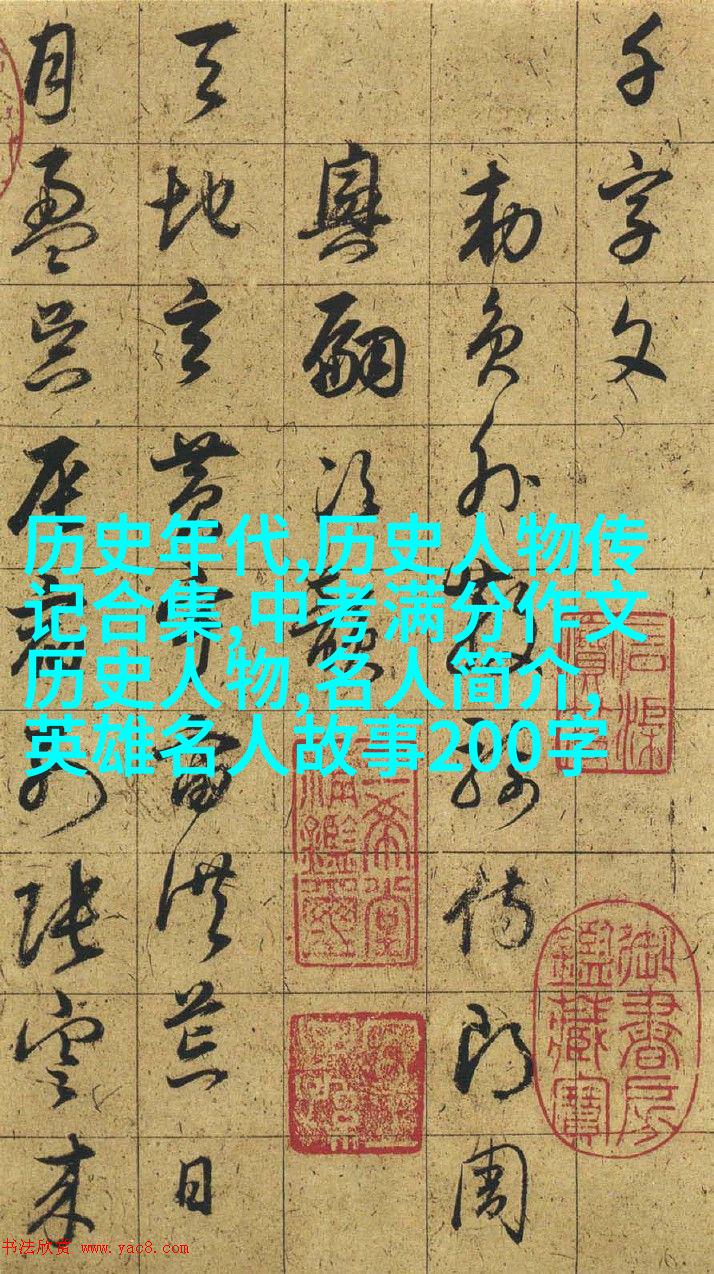 千字文
勅員外散騎侍郎周
興嗣次韻
天地玄黃宇宙洪荒日
月盈昃辰宿列張寒來
历史年代,历史人物传
记合集,中考满分作文
历史人物,名人简介,
英雄名人故事200字
三希堂
精鑑璽
御書房
鑑藏寶
书法欣赏 www.yac8.com